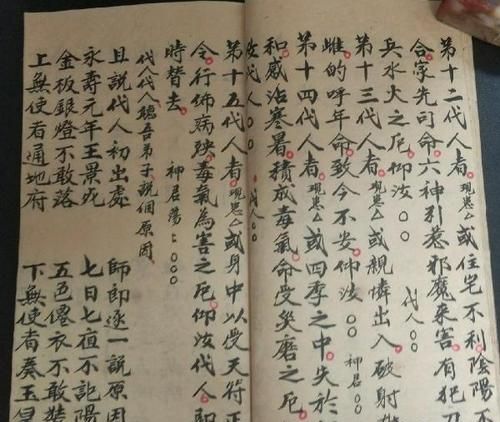 第十二代人者。現患△或住宅不利陰陽
合家先司命。六神引惹邪魔來害。有犯刀
兵水火之厄。仰汝〇〇 代人〇〇
第十三代人者。現患△或親憐出入。破射
雌的呼年命。致今不安。仰汝〇〇 神君〇〇
第十四代人者。現患△或四季之中。失於
和感沾寒暑。積成毒氣。命受災磨之厄。
汝代人〇〇 代人〇〇
第十五代人者。現患△或身中以受天符正
令行佈病殃。毒氣為害之厄。仰汝代人。即
時替去。 神君蕩〻〇〇〇
代人代人聽吾弟子說個原因
且說代人初出處 師即逐一說原因
永壽元年王景死 七日七夜不記陽
金板銀燈不敢落 五色僊衣不敢裝
上無使者通地府 下無使者奏玉